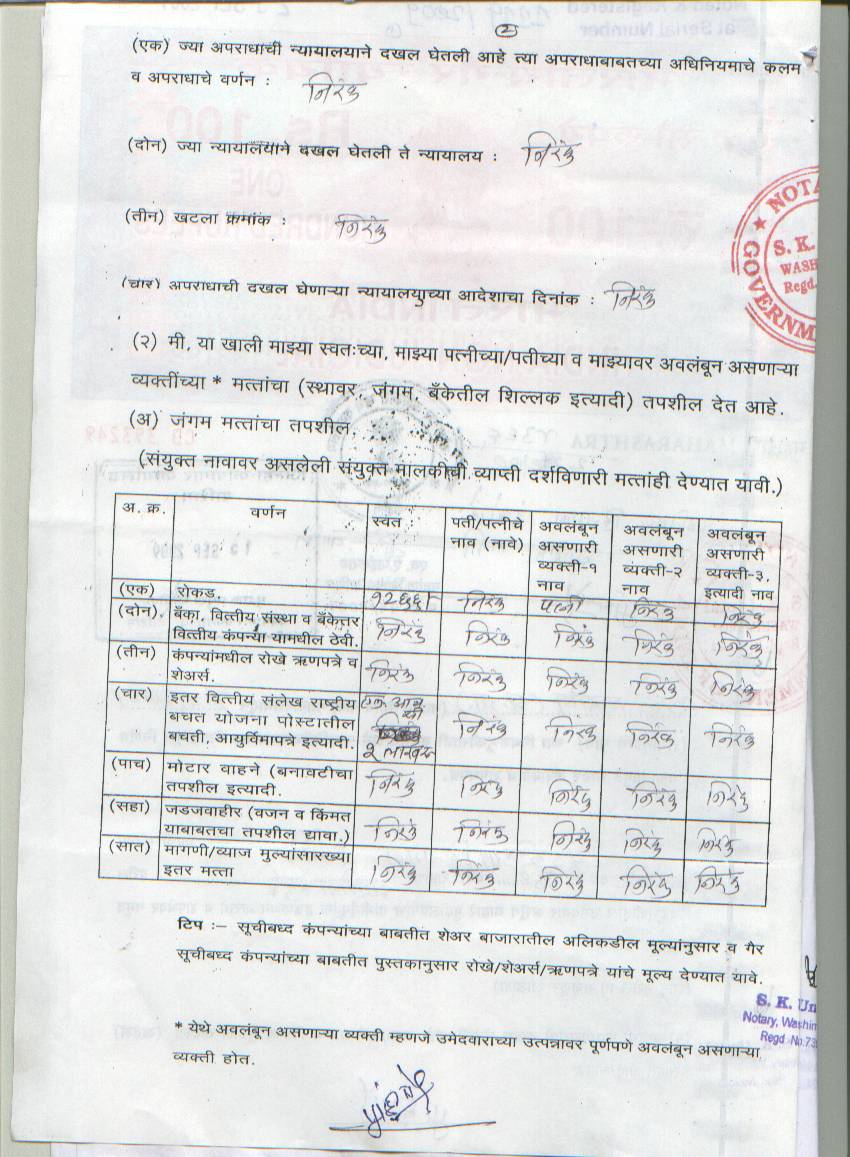 (2)
(एक) ज्या अपराधाची न्यायालयाने दखल घेतली आहे त्या अपराधाबाबतच्या अधिनियमाचे कलम
व अपराधाचे वर्णन : निरंक
(दोन) ज्या न्यायालयाने दखल घेतली ते न्यायालय : निरंक
(तीन) खटला क्रमांक : निरंक
(चार) अपराधाची दखल घेणाऱ्या न्यायालयाच्या आदेशाचा दिनांक : निरंक
NOTA
S. K.
WASH
Regd.
GOVERNM
(२) मी, या खाली माझ्या स्वतःच्या, माझ्या पत्नीच्या/पतीच्या व माझ्यावर अवलंबून असणाऱ्या
व्यक्तींच्या * मत्तांचा (स्थावर, जंगम, बँकेतील शिल्लक इत्यादी) तपशील देत आहे.
(अ) जंगम मत्तांचा तपशील
(संयुक्त नावावर असलेली संयुक्त मालकीची व्याप्ती दर्शविणारी मत्तांही देण्यात यावी.)
अ. क्र. वर्णन स्वत पती/पत्नीचे नाव (नावे) अवलंबून असणारी व्यक्ती-१ नाव अवलंबून असणारी व्यक्ती-२ नाव अवलंबून असणारी व्यक्ती-३, इत्यादी नाव
(एक) रोकड. निरंक पत्नी निरंक निरंक
(दोन) बँका, वित्तीय संस्था व बँकेतर वित्तीय कंपन्या यामधील ठेवी. निरंक निरंक निरंक निरंक निरंक
(तीन) कंपन्यांमधील रोखे ऋणपत्रे व शेअर्स. निरंक निरंक निरंक निरंक निरंक
(चार) इतर वित्तीय संलेख राष्ट्रीय बचत योजना पोस्टातील बचती, आयुर्विमापत्रे इत्यादी. निरंक निरंक निरंक निरंक
(पाच) मोटार वाहने (बनावटीचा तपशील इत्यादी. निरंक निरंक निरंक निरंक निरंक
(सहा) जडजवाहीर (वजन व किंमत याबाबतचा तपशील द्यावा.) निरंक निरंक निरंक निरंक निरंक
(सात) मागणी/व्याज मुल्यांसारख्या इतर मत्ता निरंक निरंक निरंक निरंक निरंक
टिप :– सूचीबध्द कंपन्यांच्या बाबतीत शेअर बाजारातील अलिकडील मूल्यांनुसार व गैर
सूचीबध्द कंपन्यांच्या बाबतीत पुस्तकानुसार रोखे/शेअर्स/ऋणपत्रे यांचे मूल्य देण्यात यावे.
S. K. Un
Notary, Washim
Regd No.73
* येथे अवलंबून असणाऱ्या व्यक्ती म्हणजे उमेदवाराच्या उत्पन्नावर पूर्णपणे अवलंबून असणाऱ्या
व्यक्ती होत.